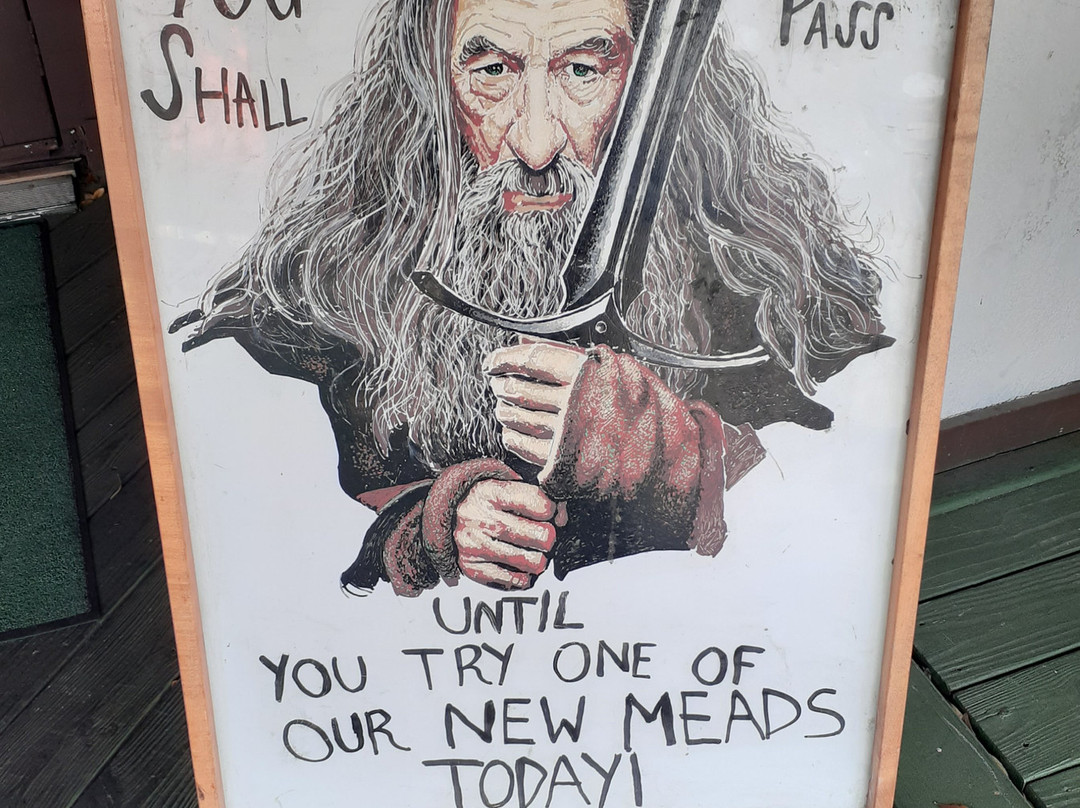 YOU
SHALL
PASS
UNTIL
YOU TRY ONE OF
OUR NEW MEADS
TODAY!